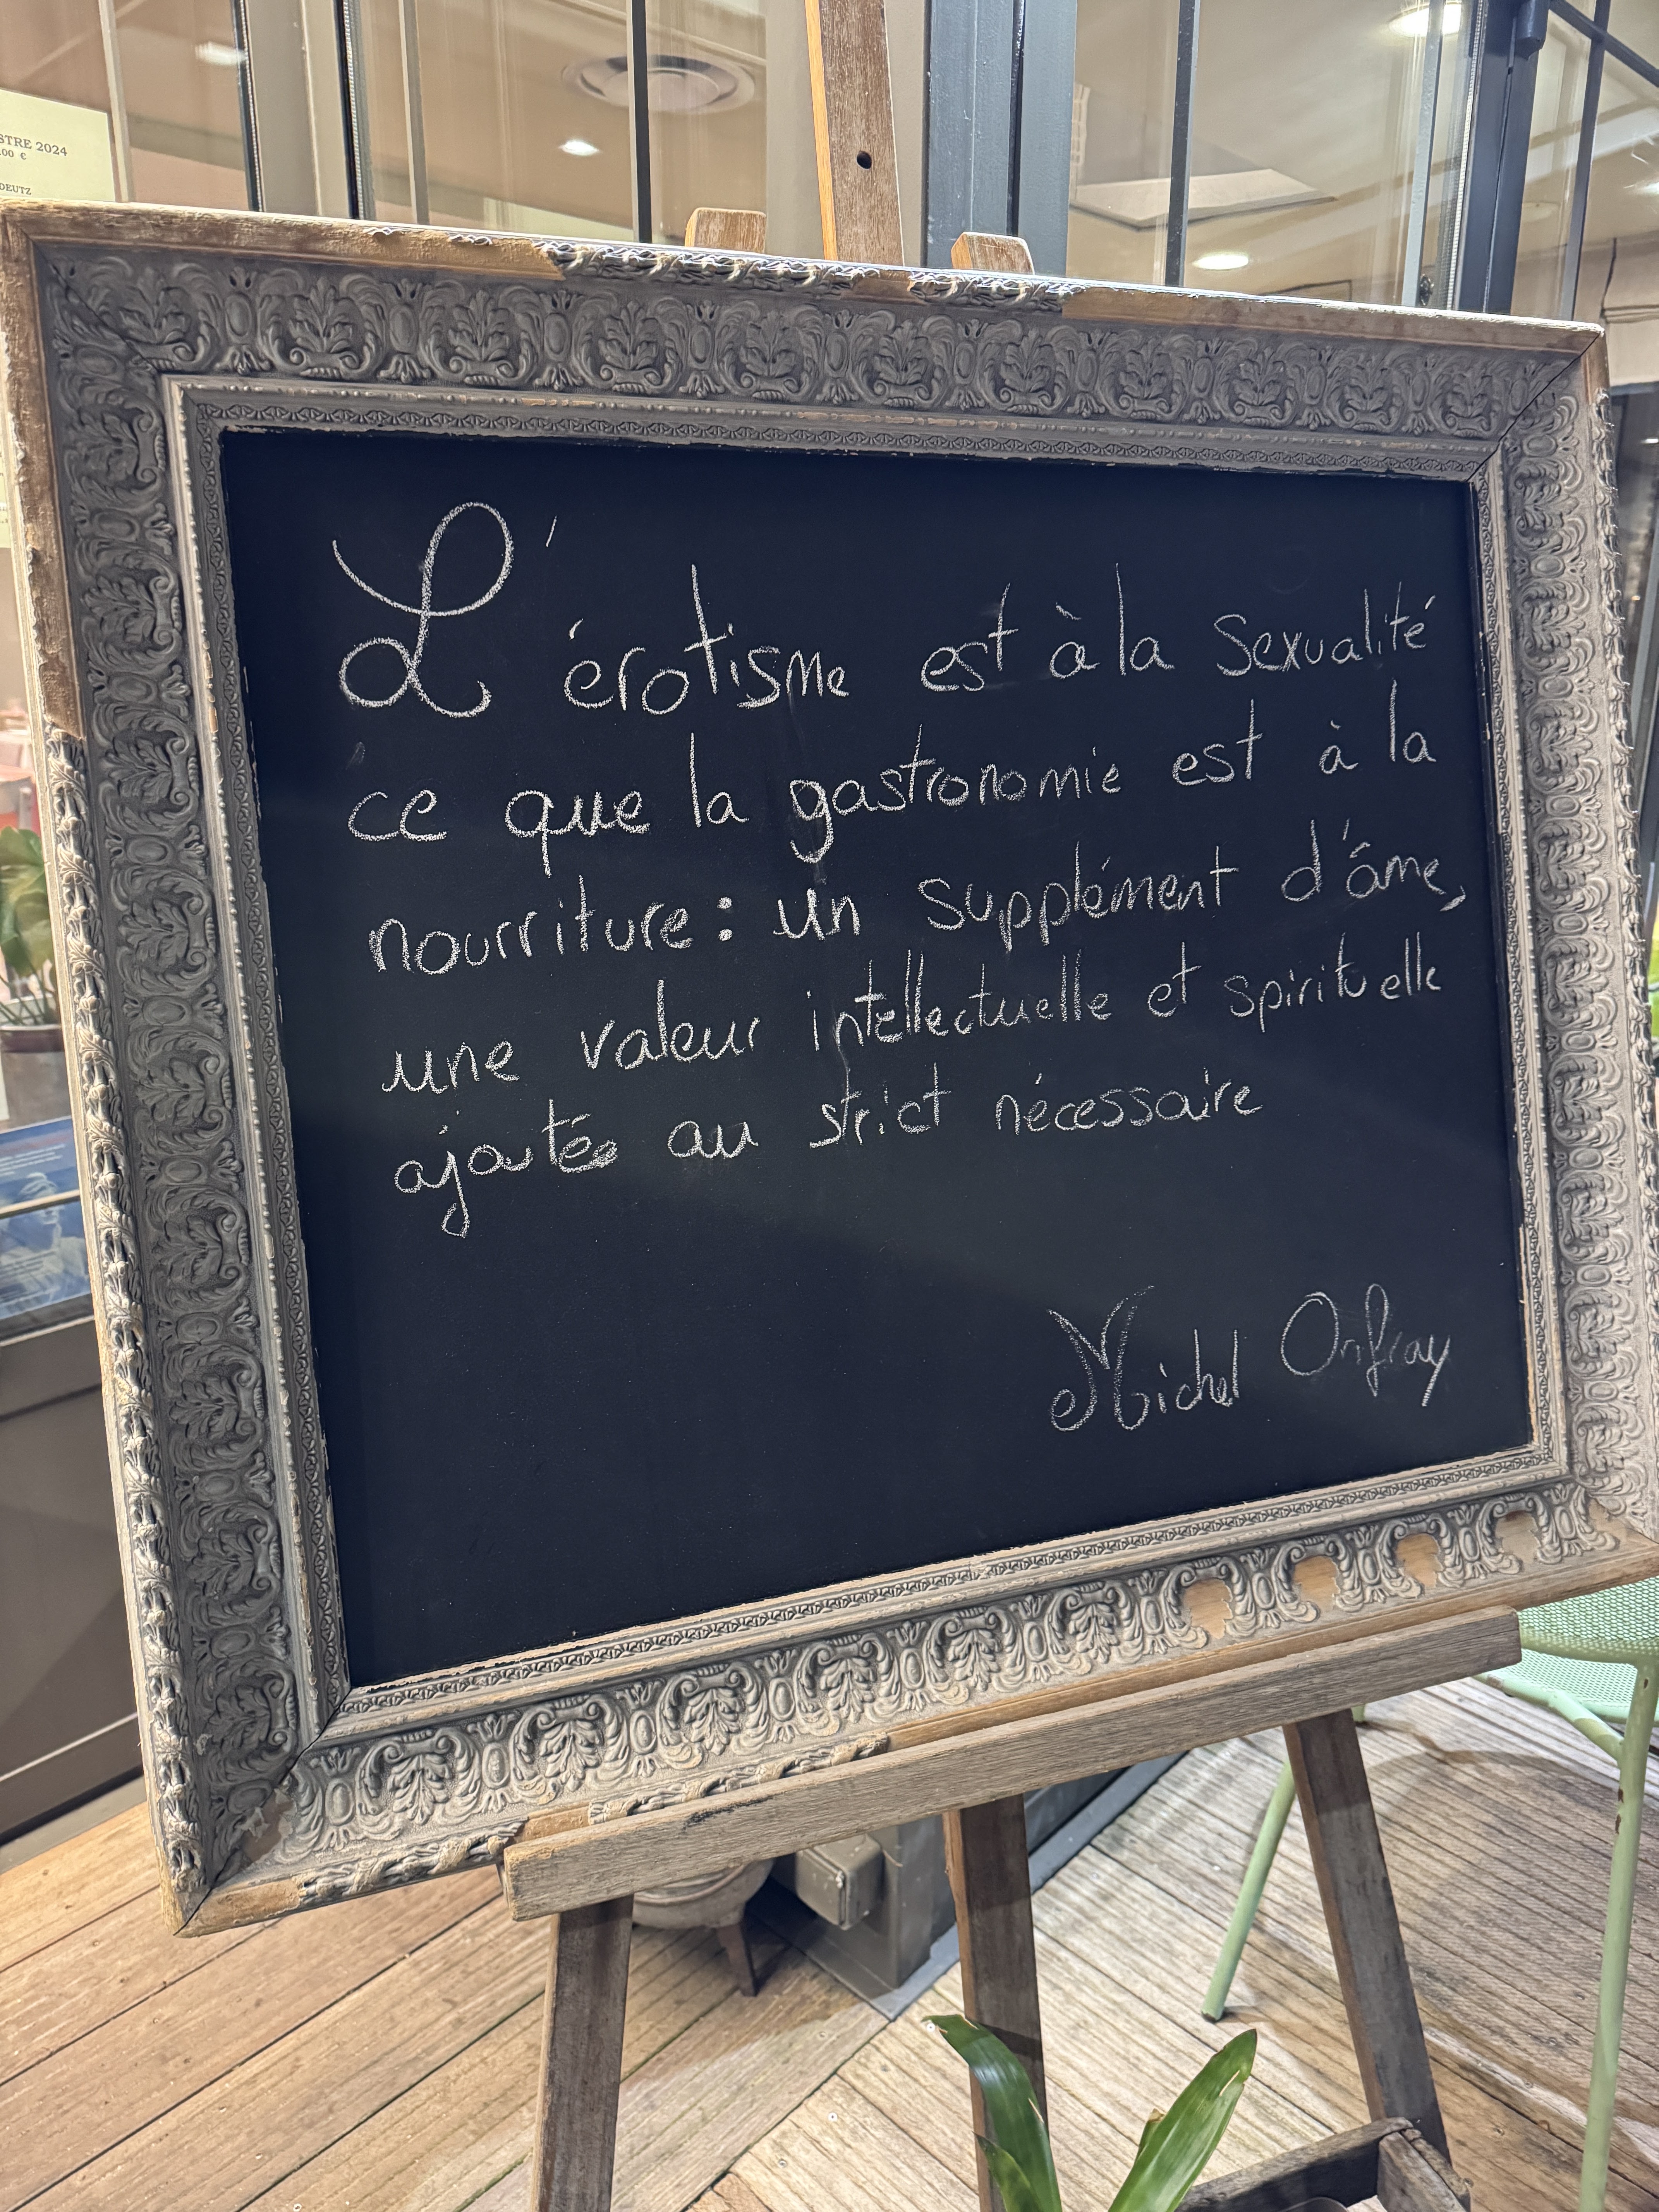 STRE 2024
.00 €
DEUTZ
L'érotisme est à la sexualité
ce que la gastronomie est à la
nourriture : un supplément d'âme,
une valeur intellectuelle et spirituelle
ajoutée au strict nécessaire
Michel Onfray